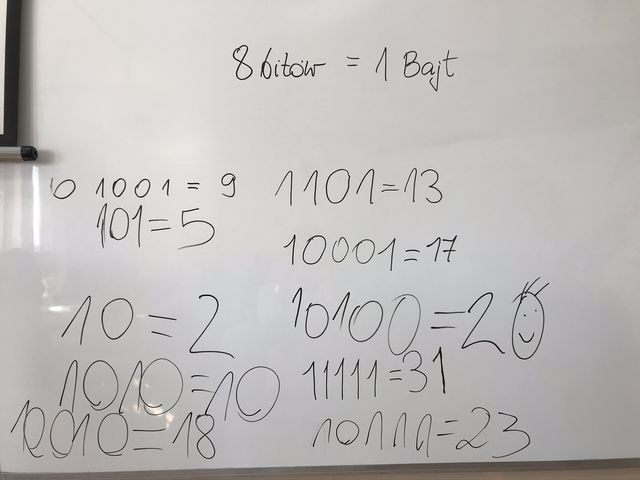 8 bitów = 1 Bajt
10 1001 = 9
101=5
10=2
1010=10
10010=18
1101=13
10001=17
10100=20
11111=31
10111=23